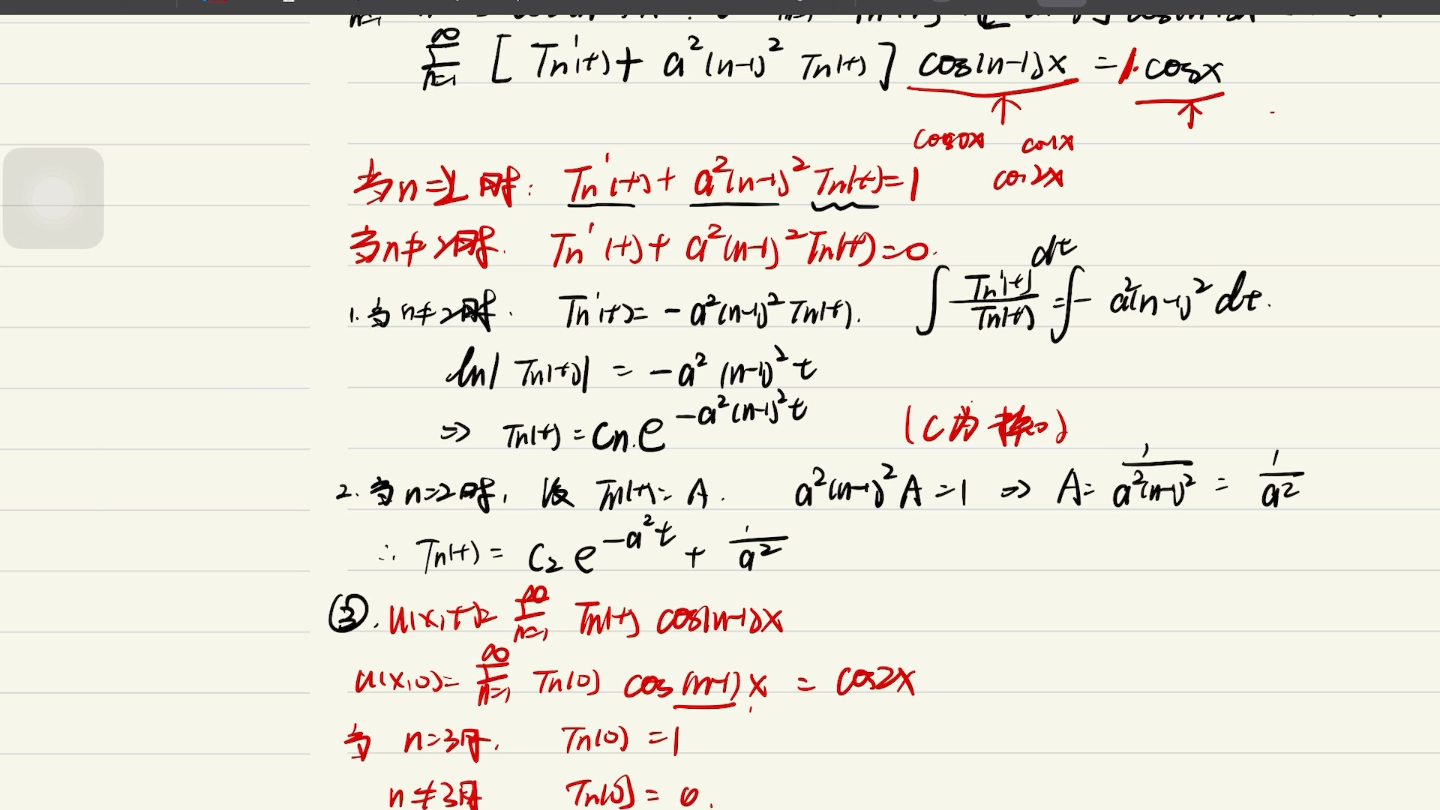 ∞
Σ [ Tn'(t) + a²(n-1)² Tn(t) ] cos(n-1)x = 1·cosx
n=1
cos0x cos1x
cos2x
当n=2时: Tn'(t) + a²(n-1)² Tn(t) = 1
当n≠2时. Tn'(t) + a²(n-1)² Tn(t) = 0.
1. 当n≠2时. Tn'(t) = -a²(n-1)² Tn(t). ∫ Tn'(t)/Tn(t) dt = ∫ -a²(n-1)² dt.
ln|Tn(t)| = -a²(n-1)²t
⇒ Tn(t) = Cn·e^{-a²(n-1)²t} (C为)
2. 当n=2时, 设 Tn(t) = A. a²(n-1)²A = 1 ⇒ A = 1/a²(n-1)² = 1/a²
∴ Tn(t) = C₂e^{-a²t} + 1/a²
③. u(x,t) = Σ_{n=1}^{∞} Tn(t) cos(n-1)x
u(x,0) = Σ_{n=1}^{∞} Tn(0) cos(n-1)x = cos2x
当 n=3时. Tn(0) = 1
n≠3时 Tn(0) = 0.